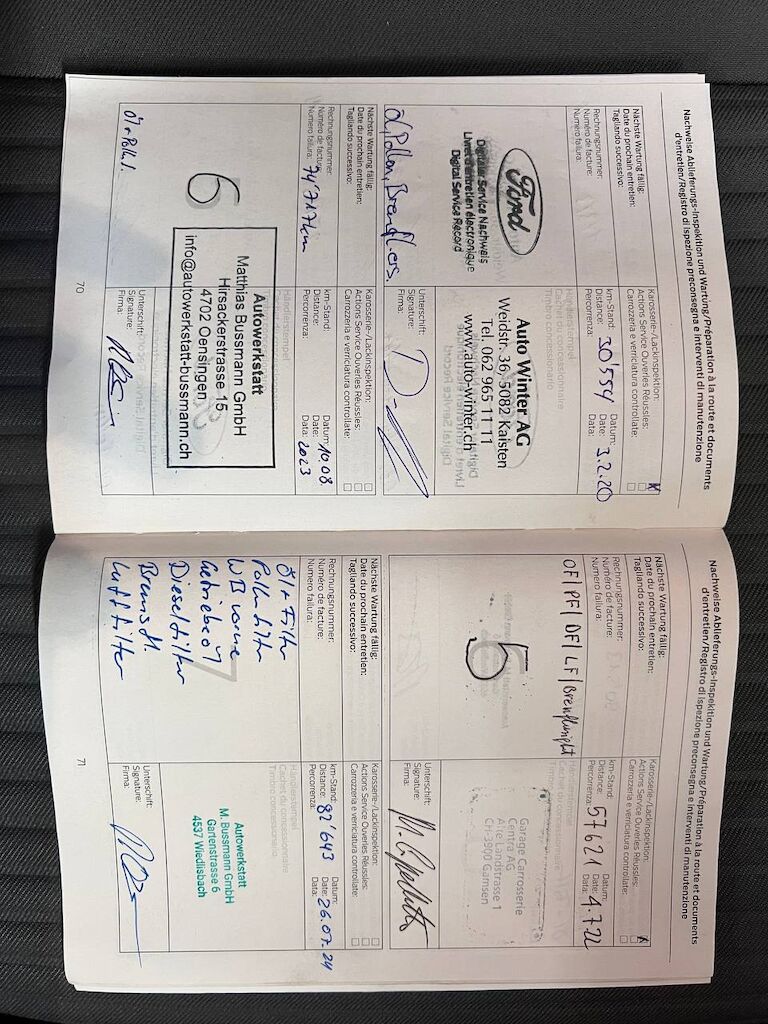 Nachweise Ablieferungs-Inspektion und Wartung/Préparation à la route et documents
d'entretien/Registro di ispezione preconsegna e interventi di manutenzione
Nächste Wartung fällig:
Date du prochain entretien:
Tagliando successivo:
Karosserie-/Lackinspektion:
Actions Service Ouvertes Réussies:
Carrozzeria e verriciatura controllate:
Rechnungsnummer:
Numéro de facture:
Numero fallura:
km-Stand:
Distance:
Percorrenza:
30'554
Datum:
Date:
Data:
3.2.20
Ford
Digitaler Service Nachweis
Livret d'entretien électronique
Digital Service Record
Auto Winter AG
Weidstr. 36, 5082 Kaisten
Tel. 062 965 11 11
www.auto-winter.ch
Öl, Pollen, Brenfl. es.
Unterschrift:
Signature:
Firma:
Nächste Wartung fällig:
Date du prochain entretien:
Tagliando successivo:
Karosserie-/Lackinspektion:
Actions Service Ouvertes Réussies:
Carrozzeria e verriciatura controllate:
Rechnungsnummer:
Numéro de facture:
Numero fallura:
74'717km
km-Stand:
Distance:
Percorrenza:
Datum:
Date:
Data:
10.08.
2023
6
Autowerkstatt
Matthias Bussmann GmbH
Hirsackerstrasse 15
4702 Oensingen
info@autowerkstatt-bussmann.ch
Öl + Poll.
Unterschrift:
Signature:
Firma:
70
Nachweise Ablieferungs-Inspektion und Wartung/Préparation à la route et documents
d'entretien/Registro di ispezione preconsegna e interventi di manutenzione
Nächste Wartung fällig:
Date du prochain entretien:
Tagliando successivo:
Karosserie-/Lackinspektion:
Actions Service Ouvertes Réussies:
Carrozzeria e verriciatura controllate:
Rechnungsnummer:
Numéro de facture:
Numero fallura:
km-Stand:
Distance:
Percorrenza:
57621
Datum:
Date:
Data:
4.7.22
OF|PF|DF|LF|
5
Garage Carrosserie
Centra AG
Alte Landstrasse 1
CH3900 Gamsen
Unterschrift:
Signature:
Firma:
Nächste Wartung fällig:
Date du prochain entretien:
Tagliando successivo:
Karosserie-/Lackinspektion:
Actions Service Ouvertes Réussies:
Carrozzeria e verriciatura controllate:
Rechnungsnummer:
Numéro de facture:
Numero fallura:
km-Stand:
Distance:
Percorrenza:
82'643
Datum:
Date:
Data:
26.07.24
Öl + Filter
Pollenfilter
WB vorne
Getriebeöl
Dieselfilter
Bremsfl.
Luftfilter
7
Autowerkstatt
M. Bussmann GmbH
Gartenstrasse 6
4537 Wiedlisbach
Unterschrift:
Signature:
Firma:
71